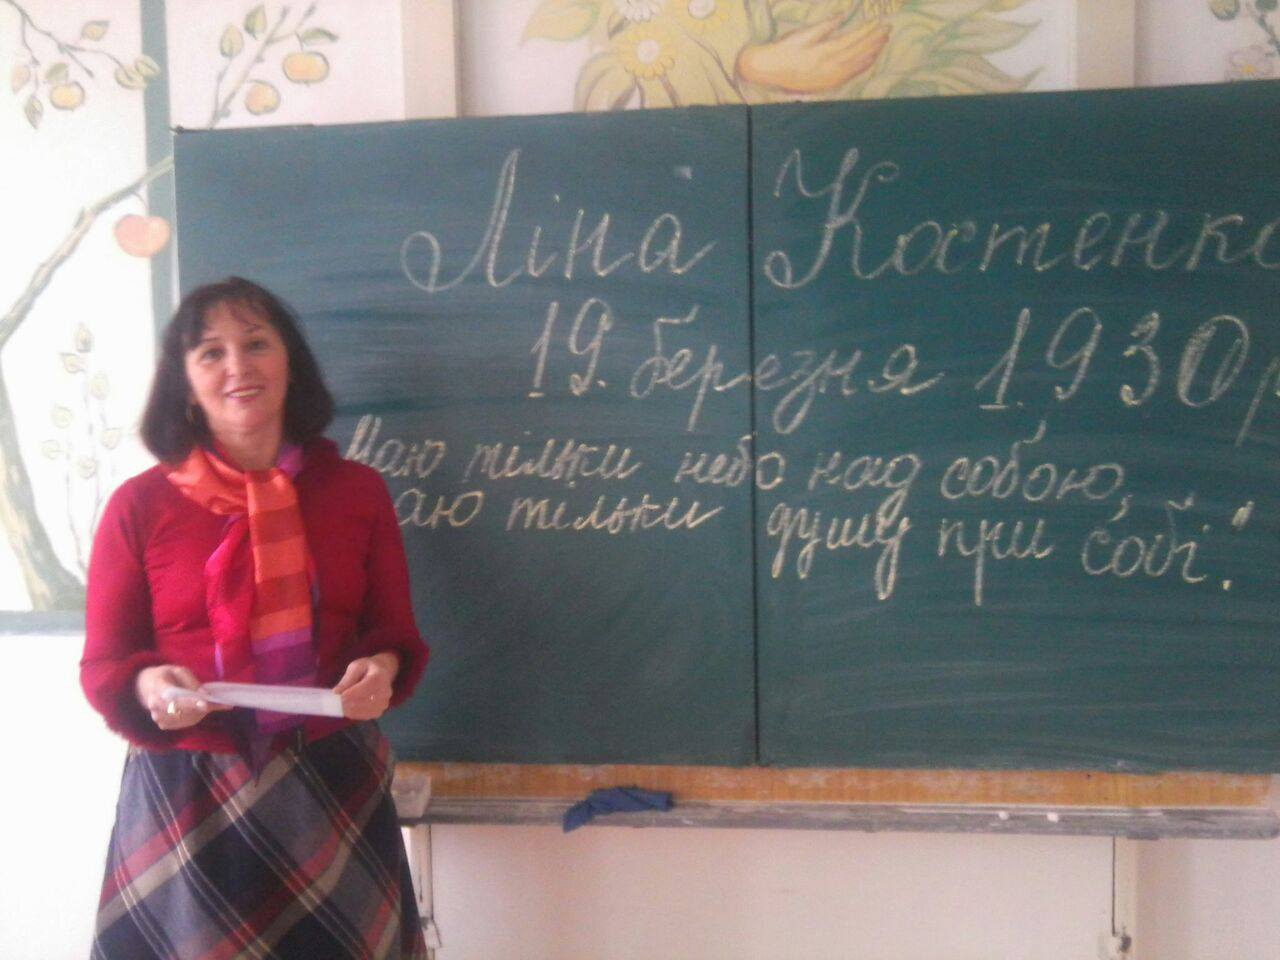 Ліна Костенко
19. березня 1930 р
Маю тільки небо над собою,
аю тільки душу при собі!